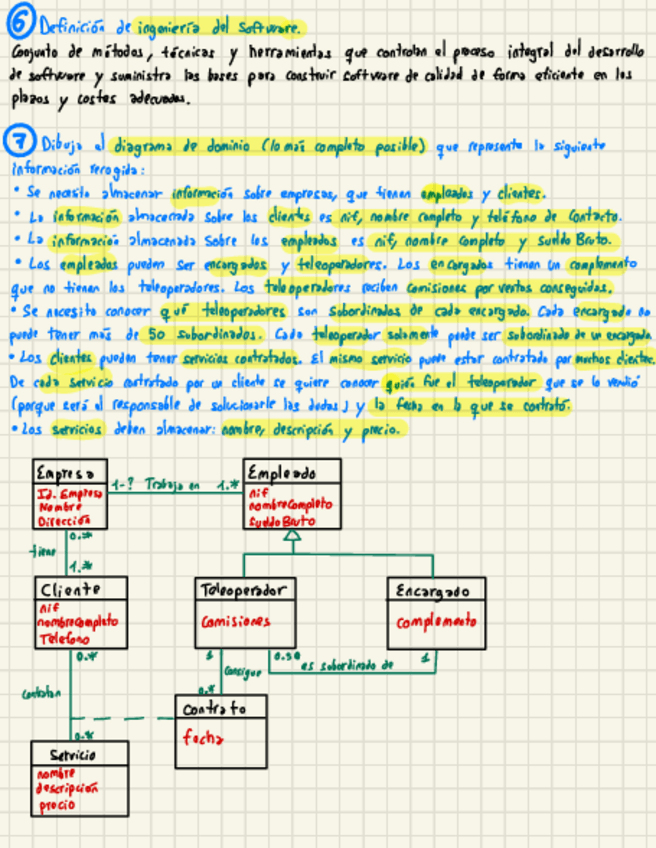 6 Definición de ingeniería del Software.
Conjunto de métodos, técnicas y herramientas que controlan el proceso integral del desarrollo
de software y suministra las bases para construir software de calidad de forma eficiente en los
plazos y costes adecuados.
7 Dibuja el diagrama de dominio (lo más completo posible) que represente la siguiente
información recogida:
• Se necesita almacenar información sobre empresas, que tienen empleados y clientes.
• La información almacenada sobre los clientes es nif, nombre completo y teléfono de contacto.
• La información almacenada sobre los empleados es nif, nombre completo y sueldo Bruto.
• Los empleados pueden ser encargados y teleoperadores. Los encargados tienen un complemento
que no tienen los teleoperadores. Los teleoperadores reciben comisiones por ventas conseguidas.
• Se necesita conocer qué teleoperadores son subordinados de cada encargado. Cada encargado no
puede tener más de 50 subordinados. Cada teleoperador solamente puede ser subordinado de un encargado.
• Los clientes pueden tener servicios contratados. El mismo servicio puede estar contratado por muchos clientes.
De cada servicio contratado por un cliente se quiere conocer quién fue el teleoperador que se lo vendió
(porque será el responsable de solucionarle las dudas) y la fecha en la que se contrató.
• Los servicios deben almacenar: nombre, descripción y precio.
Empresa
Id. Empresa
Nombre
Dirección
1-? Trabaja en 1.*
Empleado
nif
nombreCompleto
Sueldo Bruto
0.*
tiene
1.*
Cliente
nif
nombreCompleto
Telefono
Teleoperador
Comisiones
Encargado
complemento
0.*
1
Consigue
0.50
es subordinado de
1
0.*
Contratan
Contrato
fecha
0.*
Servicio
nombre
descripción
precio